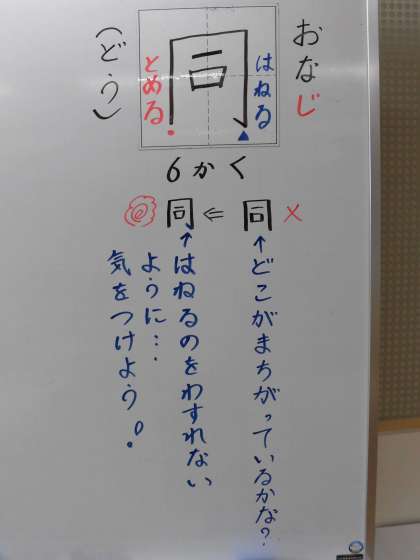 おなじ
はねる
同
とめる
(どう)
6かく
×
同
⇐
同
↑どこがまちがっているかな?
↑はねるのをわすれない
ように…
気をつけよう!